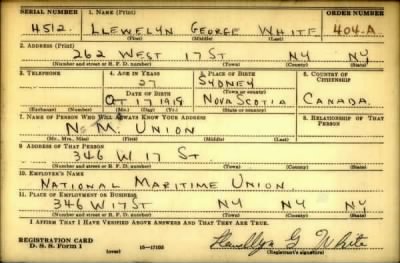 SERIAL NUMBER 1. NAME (Print) ORDER NUMBER
4512. LLEWELYN GEORGE WHITE 404-A
(First) (Middle) (Last)
2. ADDRESS (Print)
262 WEST 17 ST NY NY
(Number and street or R. F. D. number) (Town) (County) (State)
3. TELEPHONE 4. AGE IN YEARS 5. PLACE OF BIRTH 6. COUNTRY OF CITIZENSHIP
27 SYDNEY
DATE OF BIRTH (Town or county)
OCT 17 1913 NOVA SCOTIA CANADA.
(Exchange) (Number) (Mo.) (Day) (Yr.) (State or country)
7. NAME OF PERSON WHO WILL ALWAYS KNOW YOUR ADDRESS 8. RELATIONSHIP OF THAT PERSON
N. M. UNION
(Mr., Mrs., Miss) (First) (Middle) (Last)
9. ADDRESS OF THAT PERSON
346 W 17 ST.
(Number and street or R. F. D. number) (Town) (County) (State)
10. EMPLOYER'S NAME
NATIONAL MARITIME UNION
11. PLACE OF EMPLOYMENT OR BUSINESS
346 W 17 ST NY NY NY
(Number and street or R. F. D. number) (Town) (County) (State)
I AFFIRM THAT I HAVE VERIFIED ABOVE ANSWERS AND THAT THEY ARE TRUE.
REGISTRATION CARD
D. S. S. Form 1 (over) 16—17105 Llewellyn G White
(Registrant's signature)